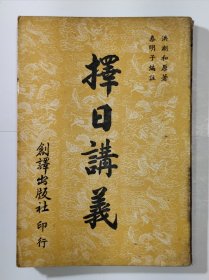 洪潮和原著
春明子編註
擇日講義
創譯出版社印行